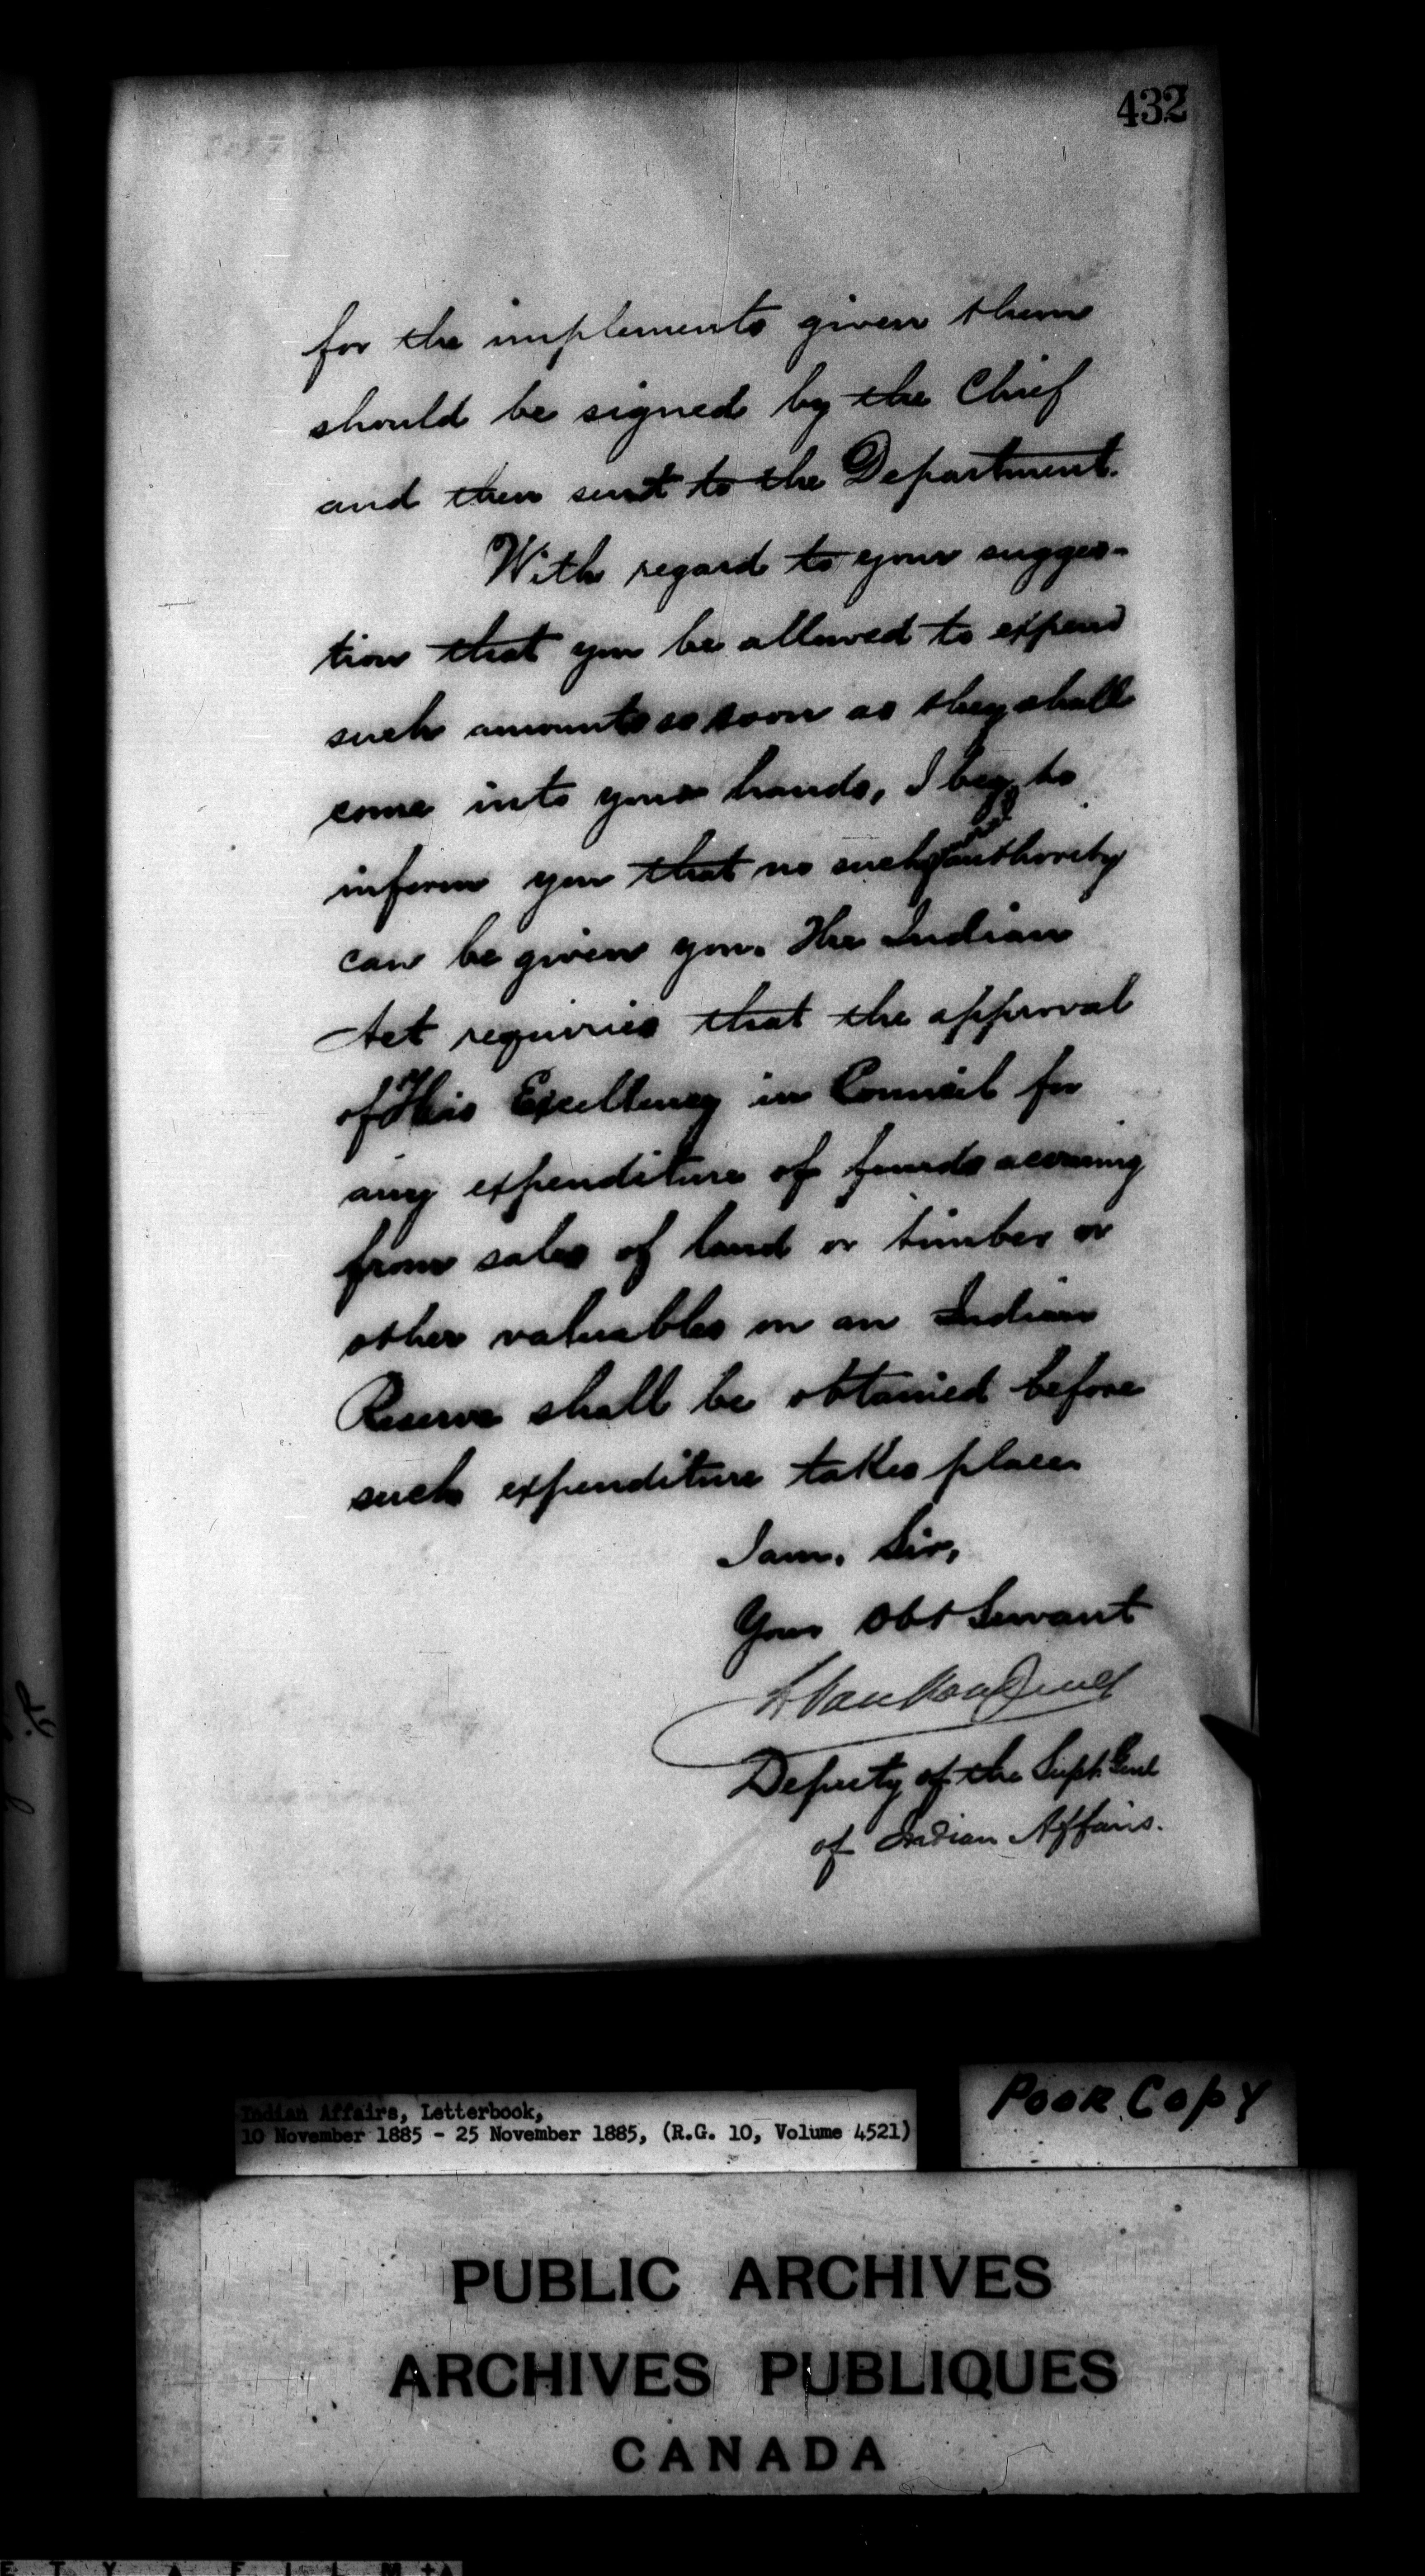 432
for the implements given them
should be signed by the Chief
and then sent to the Department.
With regard to your sugges-
tion that you be allowed to expend
such amounts so soon as they shall
come into your hands, I beg to
inform you that no such authority
can be given you. The Indian
Act requires that the approval
of His Excellency in Council for
any expenditure of funds accruing
from sales of land or timber or
other valuables on an Indian
Reserve shall be obtained before
such expenditure takes place.
I am, Sir,
Your Obt Servant
L VanKoughnet
Deputy of the Supt. Genl
of Indian Affairs.
Indian Affairs, Letterbook,
10 November 1885 - 25 November 1885, (R.G. 10, Volume 4521)
Poor Copy
PUBLIC ARCHIVES
ARCHIVES PUBLIQUES
CANADA